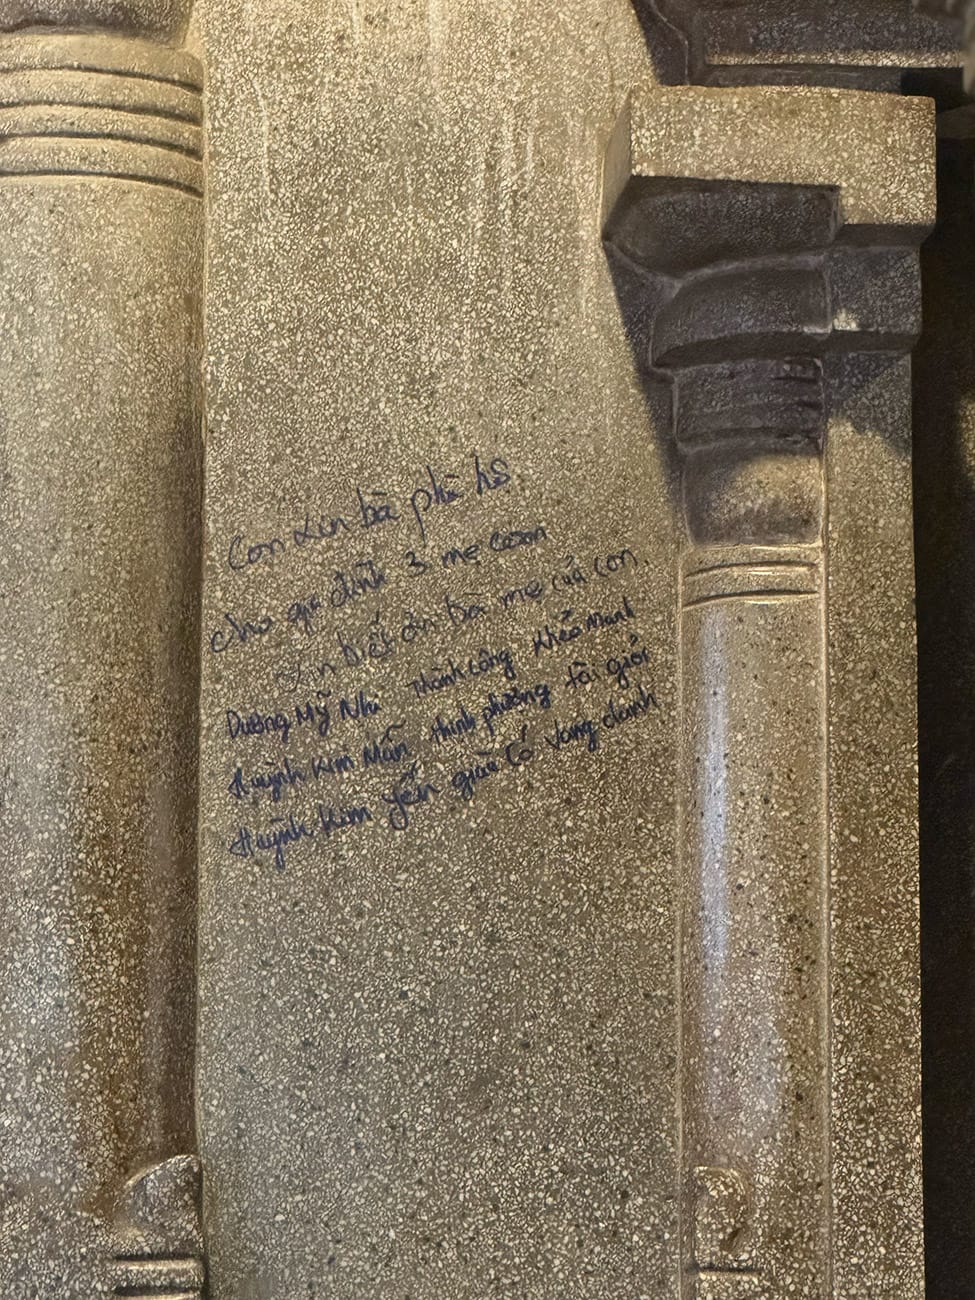 Con xin bà phù hộ
cho gia đình 3 mẹ con
ơn biết ơn bà mẹ của con.
Dương Mỹ Nhi thành công khỏe mạnh
Huỳnh Kim Mẫn thịnh phường tài giỏi
Huỳnh Kim Yến giàu có vang danh